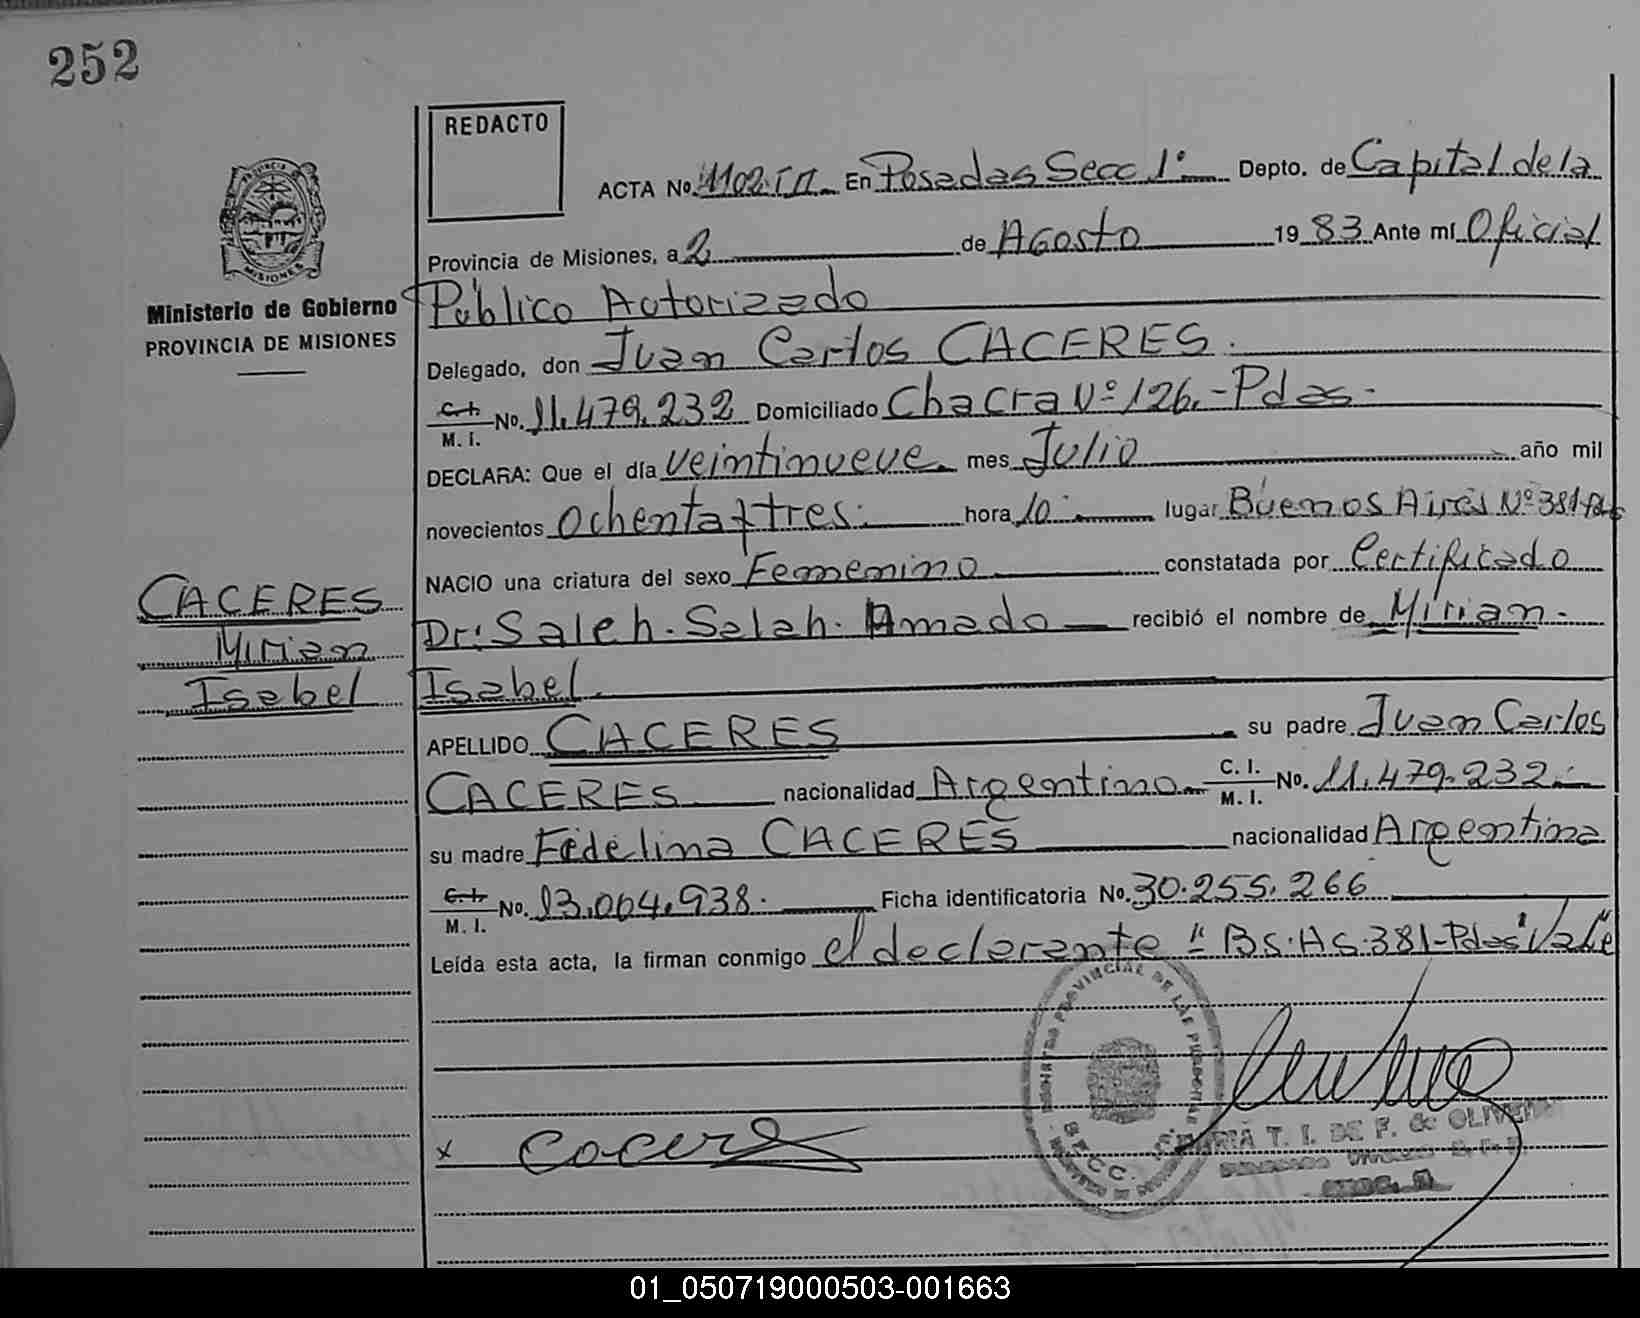 252
REDACTO
ACTA No. 1102. T II. En Posadas Secc 1° Depto. de Capital de la
Provincia de Misiones, a 2 de Agosto 19 83 Ante mí Oficial
Ministerio de Gobierno
Público Autorizado
PROVINCIA DE MISIONES
Delegado, don Juan Carlos CACERES.
C. I. M. I. No. 11.479.232 Domiciliado Chacra Nº 126.-Pdas-
DECLARA: Que el día veintinueve mes Julio año mil
novecientos ochenta y tres. hora 10 lugar Buenos Aires Nº 381-Pdas
NACIO una criatura del sexo Femenino constatada por Certificado
CACERES
Dr: Saleh. Salah. Amado recibió el nombre de Mirian.
Mirian
Isabel
Isabel.
APELLIDO CACERES su padre Juan Carlos
CACERES nacionalidad Argentino C. I. M. I. No. 11.479.232.
su madre Fidelina CACERES nacionalidad Argentina
C. I. M. I. No. 13.004.938. Ficha identificatoria No. 30.255.266
Leída esta acta, la firman conmigo el declarante "Bs.As.381-Pdas" Vale
PROVINCIAL DE LAS PERSONAS
SECC.
x Caceres
MARIA T. I. DE F. de OLIVEIRA
01_050719000503-001663